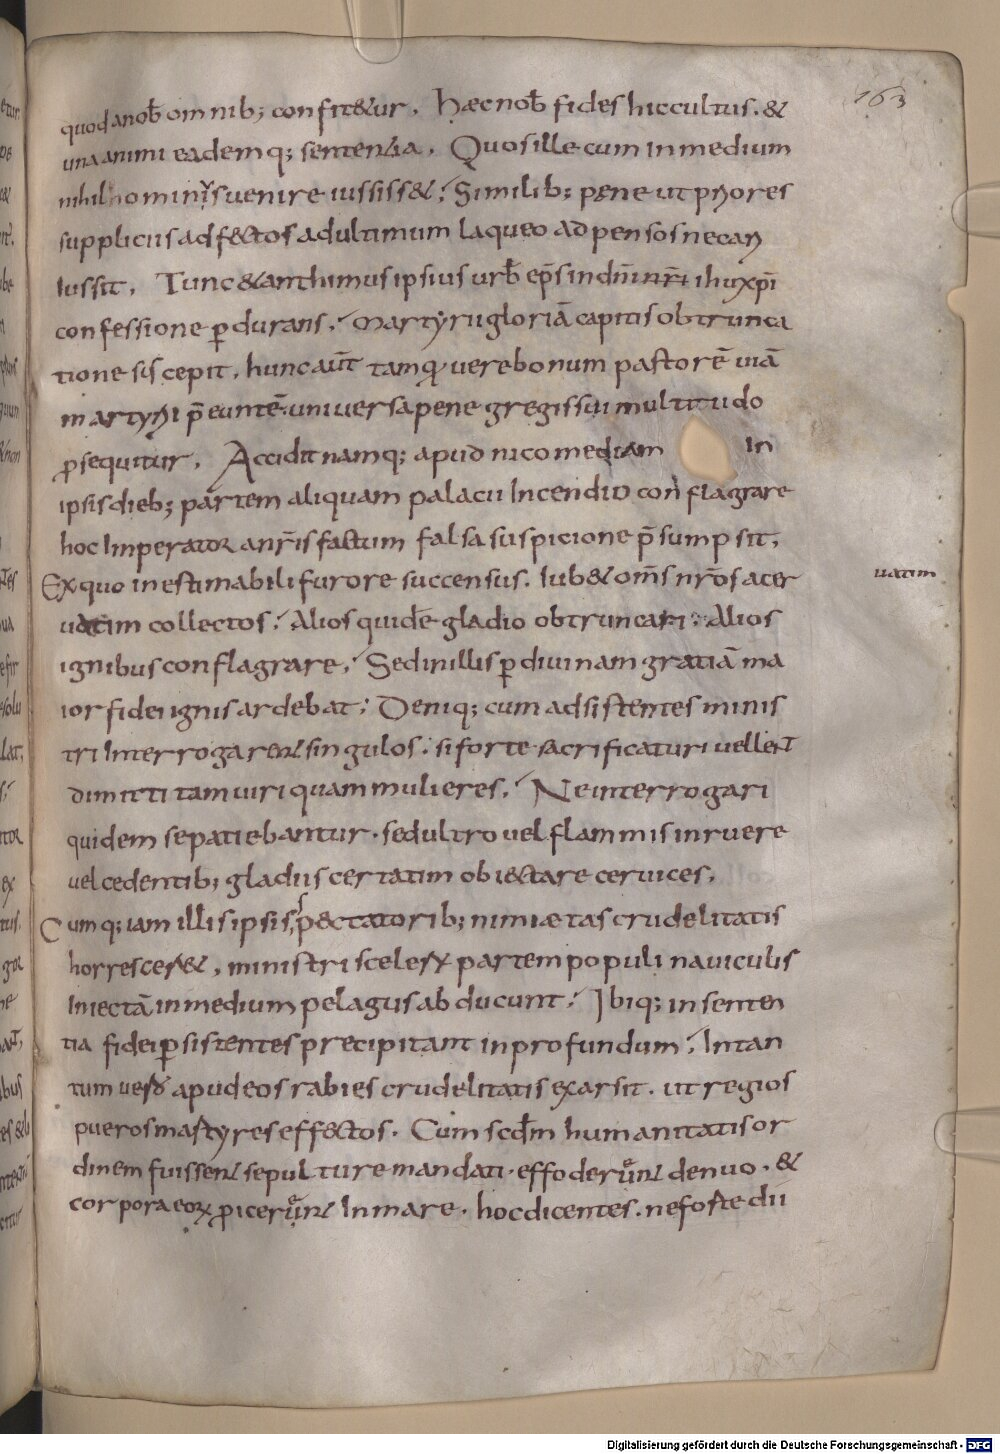 163
quod anob̄ omnib; confit&ur. Haec nob̄ fides hic cultus. &
una animi eademq; sententia. Quos ille cum in medium
nihil hominis uenire iussiss&; Similib; pene ut priores
suppliciis adfectos ad ultimum laqueo adpensos necari
iussit. Tunc & anthimus ipsius urb̄ ep̄s in dn̄i nr̄i ihu xp̄i
confessione p̄durans. Martyrii gloriā capitis obtrunca
tione siscepit. hunc aūt tamq̄ uere bonum pastorē uiā
martyrii p̄euntē uniuersa pene gregis sui multitudo
prosequitur. Accidit namq; apud nicomediam In
ipsis dieb; partem aliquam palacii Incendio conflagrare
hoc Imperator a nr̄is factum falsa suspicione p̄sumpsit.
Ex quo inestimabili furore succensus. Iub& om̄s nr̄os acer uatim
uatim collectos. Alios quidē gladio obtruncari. Alios
ignibus conflagrare. Sed in illis p̄ diuinam gratiā ma
ior fidei ignis ardebat. Deniq; cum adsistentes minis
tri Interrogarent singulos. si forte sacrificaturi uellent
dimitti tam uiri quam mulieres. Ne interrogari
quidem se patiebantur. sed ultro uel flammis inruere
uel cedentib; gladiis certatim obiectare ceruices.
Cumq; iam illis ipsis spectatorib; nimi&as crudelitatis
horrescer&, ministri sceler partem populi nauiculis
Iniectā in medium pelagus abducunt. Ibiq; in senten
tia fidei p̄sistentes precipitant in profundum. In tan
tum uero apud eos rabies crudelitatis exarsit. ut regios
pueros martyres effectos. Cum scdm̄ humanitatis or
dinem fuissent sepulture mandati. effoderunt denuo. &
corpora eor proicerunt In mare. hoc dicentes. ne forte dii
Digitalisierung gefördert durch die Deutsche Forschungsgemeinschaft - DFG